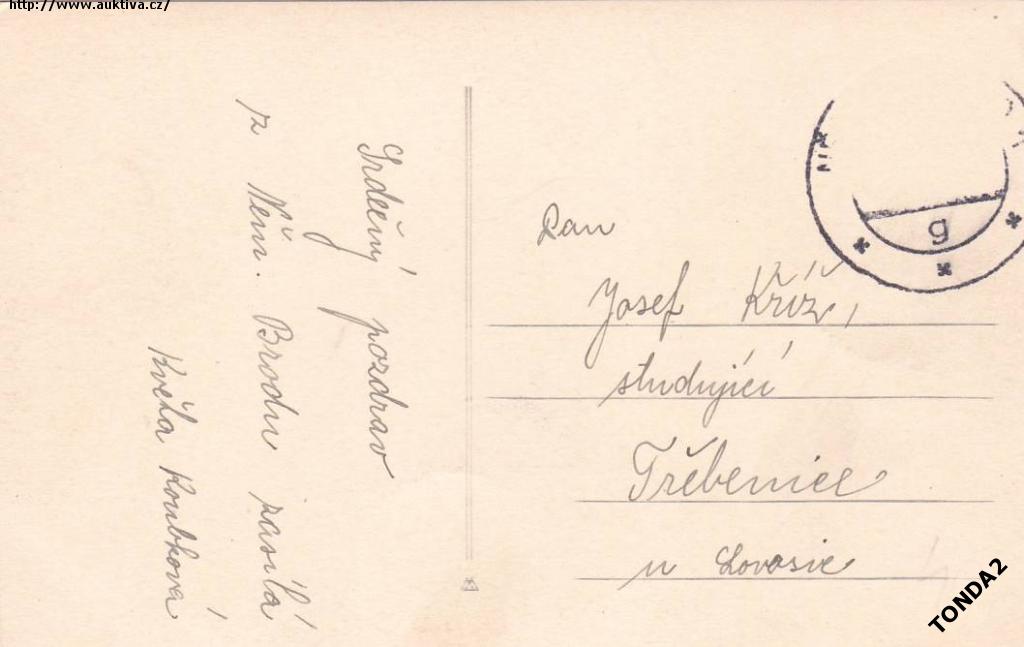 http://www.auktiva.cz/
Srdečný pozdrav
z Něm. Brodu zasílá
Květa Koubková
Pan
Josef Kříž,
studující
Třebenice
u Lovosic
g
TONDA2